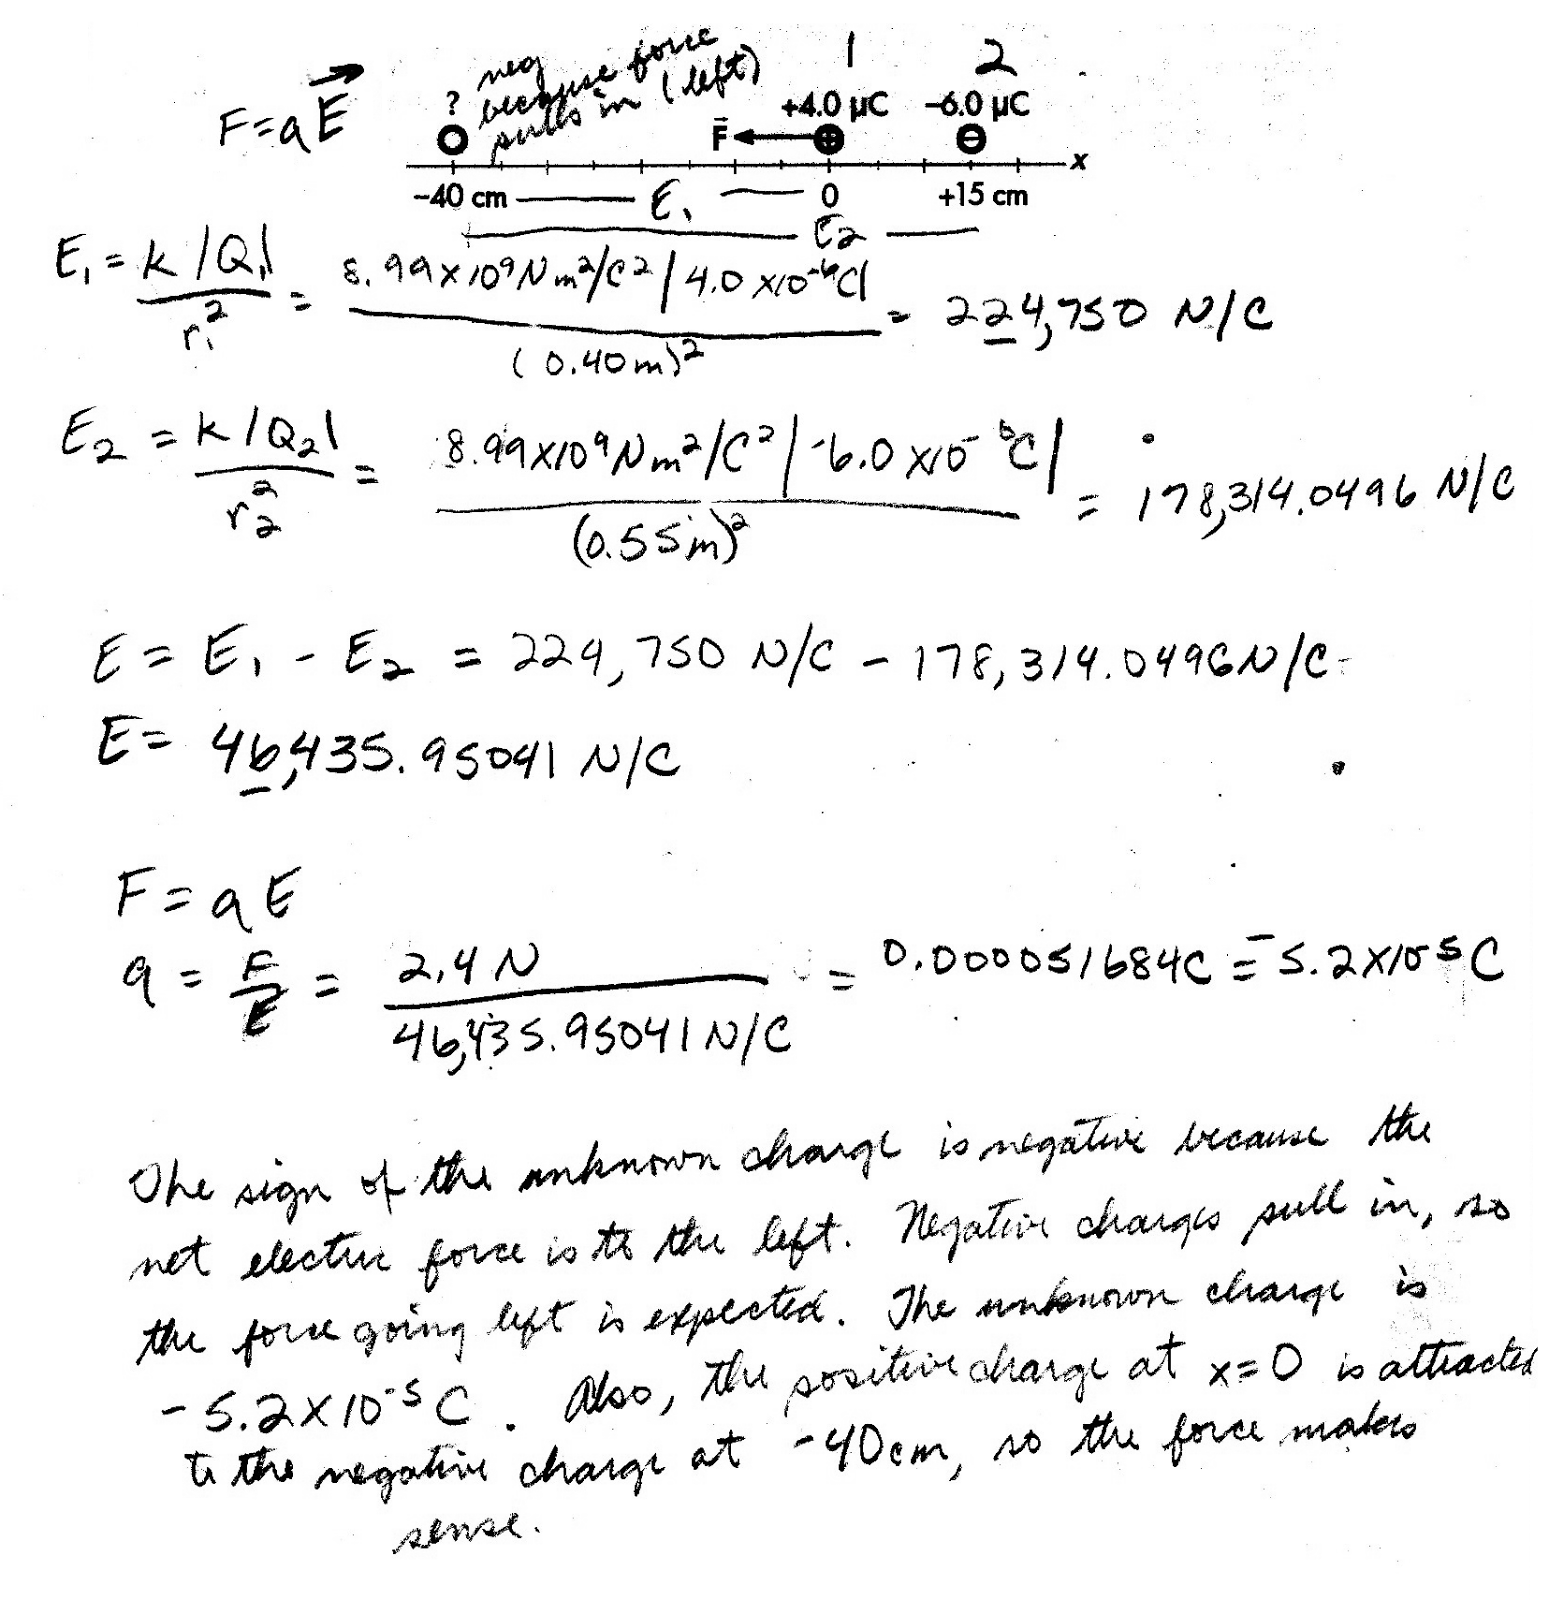 F=qE
? neg because force pulls in (left)
1 2
+4.0 μC -6.0 μC
F
-40 cm E₁ 0 +15 cm x
E₂
E₁ = k |Q₁| / r₁² = 8.99x10⁹ N m²/C² | 4.0 x10⁻⁶ C| / (0.40m)² = 224,750 N/C
E₂ = k |Q₂| / r₂² = 8.99x10⁹ N m²/C² | -6.0 x10⁻⁶ C| / (0.55m)² = 178,314.0496 N/C
E = E₁ - E₂ = 224,750 N/C - 178,314.0496 N/C
E = 46,435.95041 N/C
F = qE
q = F/E = 2.4 N / 46,435.95041 N/C = 0.000051684C = -5.2x10⁻⁵ C
The sign of the unknown charge is negative because the
net electric force is to the left. Negative charges pull in, so
the force going left is expected. The unknown charge is
-5.2x10⁻⁵ C. Also, the positive charge at x=0 is attracted
to the negative charge at -40cm, so the force makes
sense.